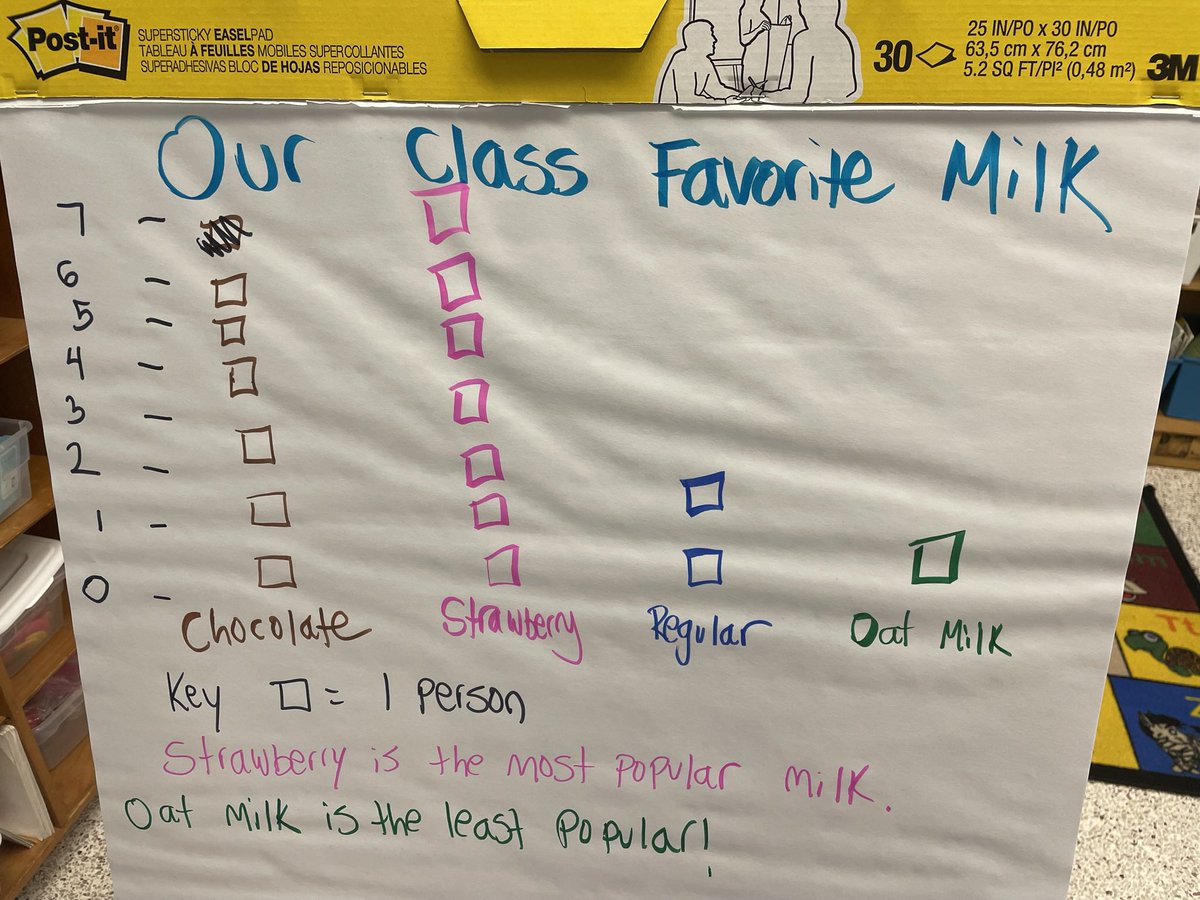 Post-it
SUPERSTICKY EASELPAD
TABLEAU À FEUILLES MOBILES SUPERCOLLANTES
SUPERADHESIVAS BLOC DE HOJAS REPOSICIONABLES
30
25 IN/PO x 30 IN/PO
63,5 cm x 76,2 cm
5.2 SQ FT/PI² (0,48 m²)
3M
Our Class Favorite Milk
7 -
6 -
5 -
4 -
3 -
2 -
1 -
0 -
Chocolate Strawberry Regular Oat Milk
Key □ = 1 person
Strawberry is the most popular milk.
Oat Milk is the least Popular!